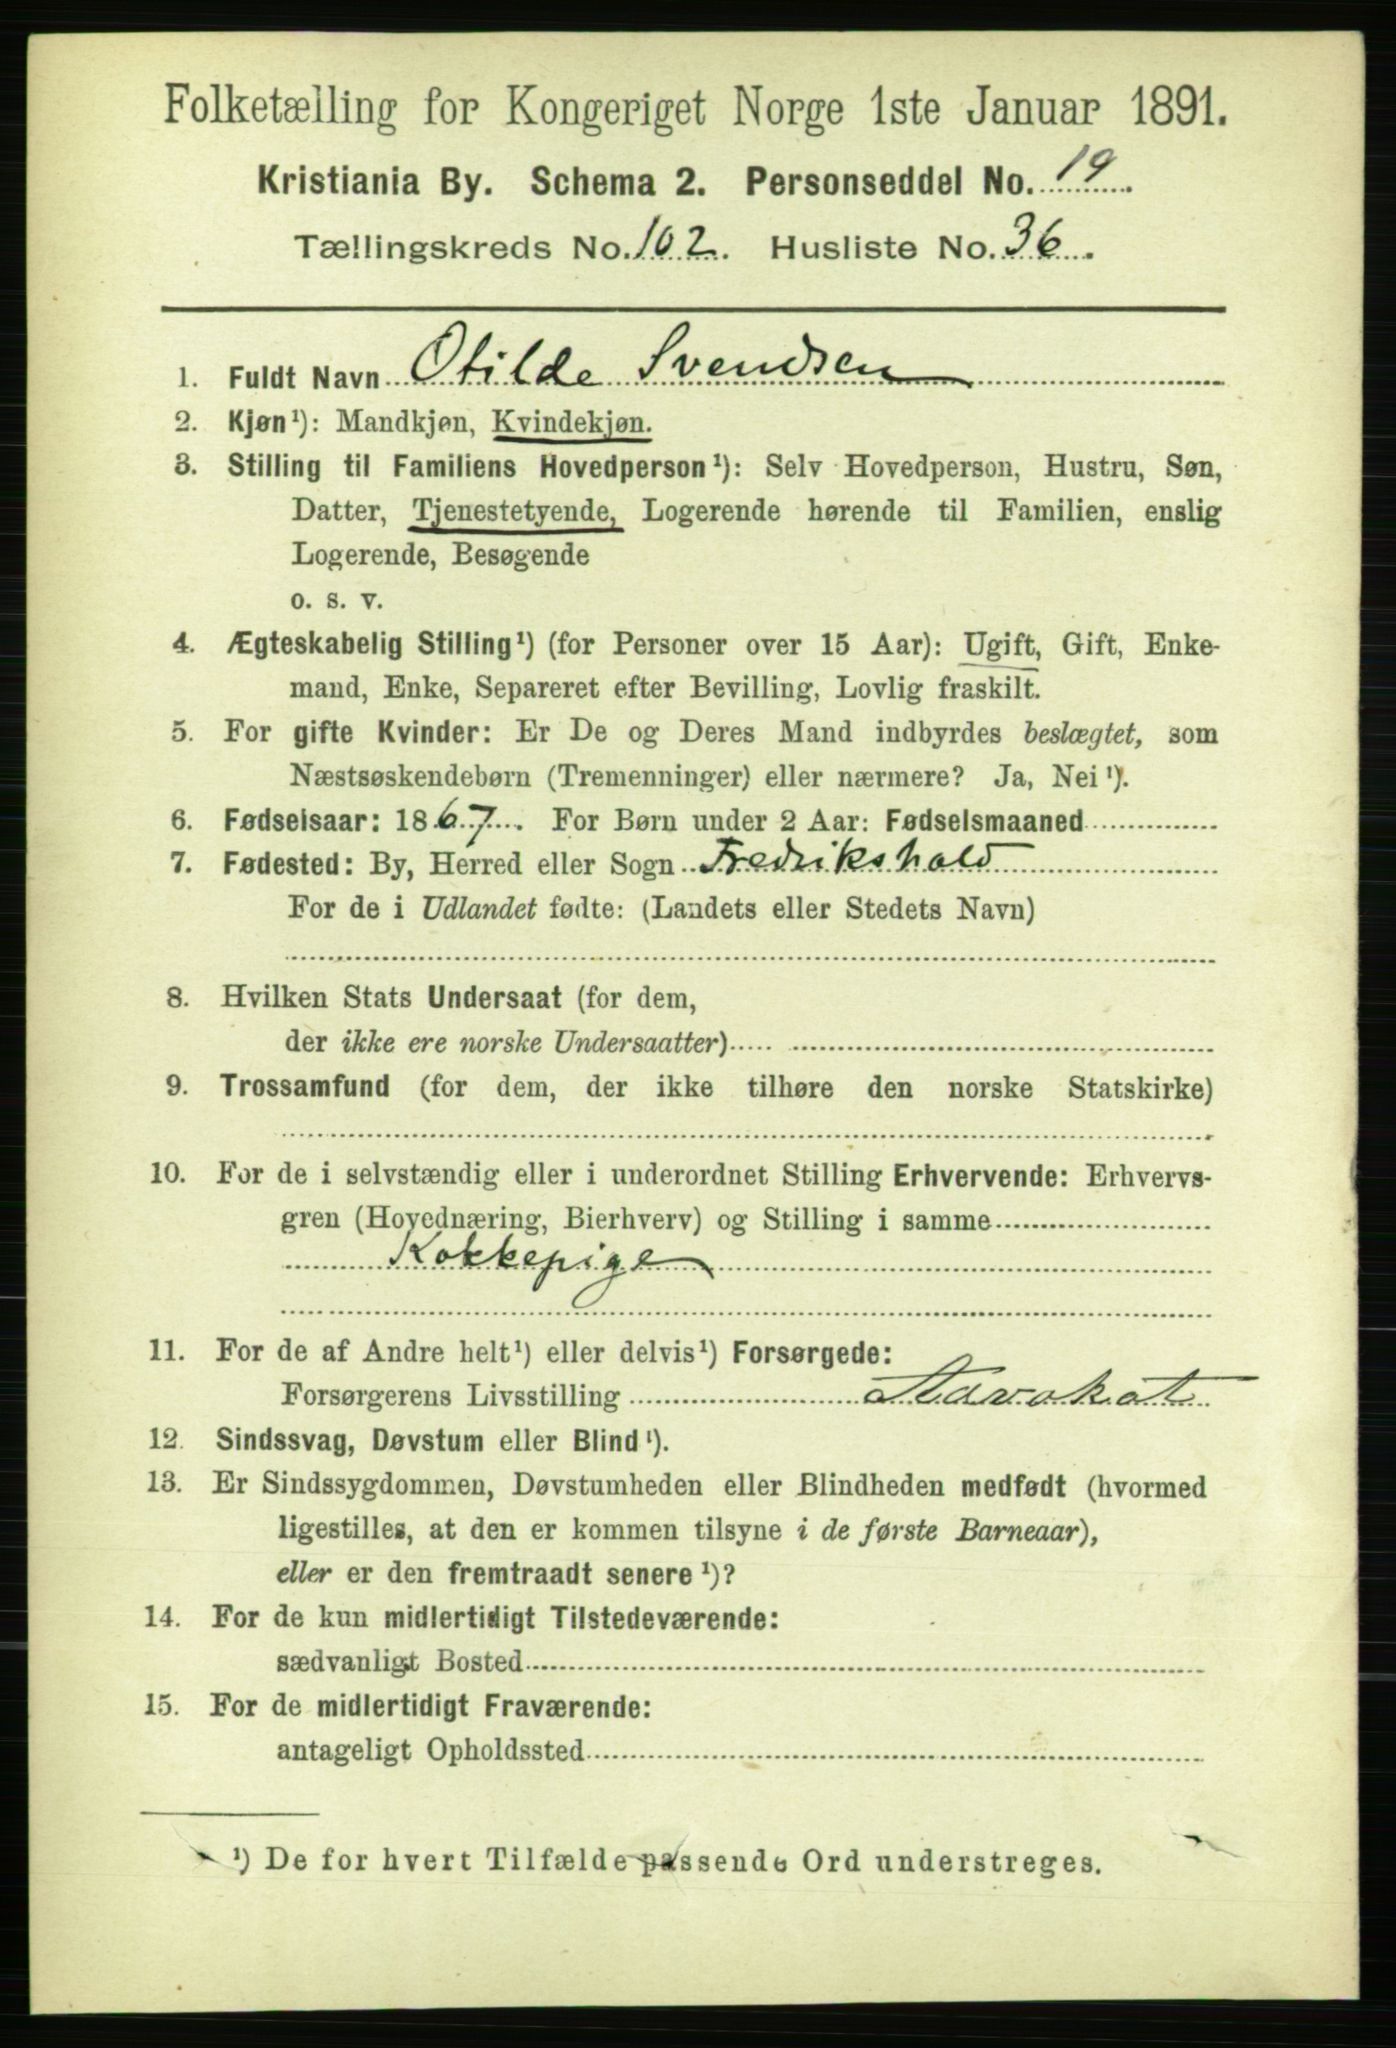 Folketælling for Kongeriget Norge 1ste Januar 1891.
Kristiania By. Schema 2. Personseddel No. 19.
Tællingskreds No. 102. Husliste No. 36.
1. Fuldt Navn Otilde Svendsen
2. Kjøn¹): Mandkjøn, Kvindekjøn.
3. Stilling til Familiens Hovedperson¹): Selv Hovedperson, Hustru, Søn,
Datter, Tjenestetyende, Logerende hørende til Familien, enslig
Logerende, Besøgende
o. s. v.
4. Ægteskabelig Stilling¹) (for Personer over 15 Aar): Ugift, Gift, Enke-
mand, Enke, Separeret efter Bevilling, Lovlig fraskilt.
5. For gifte Kvinder: Er De og Deres Mand indbyrdes beslægtet, som
Næstsøskendebørn (Tremenninger) eller nærmere? Ja, Nei¹).
6. Fødselsaar: 1867. For Børn under 2 Aar: Fødselsmaaned
7. Fødested: By, Herred eller Sogn Fredrikshald
For de i Udlandet fødte: (Landets eller Stedets Navn)
8. Hvilken Stats Undersaat (for dem,
der ikke ere norske Undersaatter)
9. Trossamfund (for dem, der ikke tilhøre den norske Statskirke)
10. For de i selvstændig eller i underordnet Stilling Erhvervende: Erhvervs-
gren (Hovednæring, Bierhverv) og Stilling i samme
Kokkepige
11. For de af Andre helt¹) eller delvis¹) Forsørgede:
Forsørgerens Livsstilling Advokat
12. Sindssvag, Døvstum eller Blind¹).
13. Er Sindssygdommen, Døvstumheden eller Blindheden medfødt (hvormed
ligestilles, at den er kommen tilsyne i de første Barneaar),
eller er den fremtraadt senere¹)?
14. For de kun midlertidigt Tilstedeværende:
sædvanligt Bosted
15. For de midlertidigt Fraværende:
antageligt Opholdssted
¹) De for hvert Tilfælde passende Ord understreges.